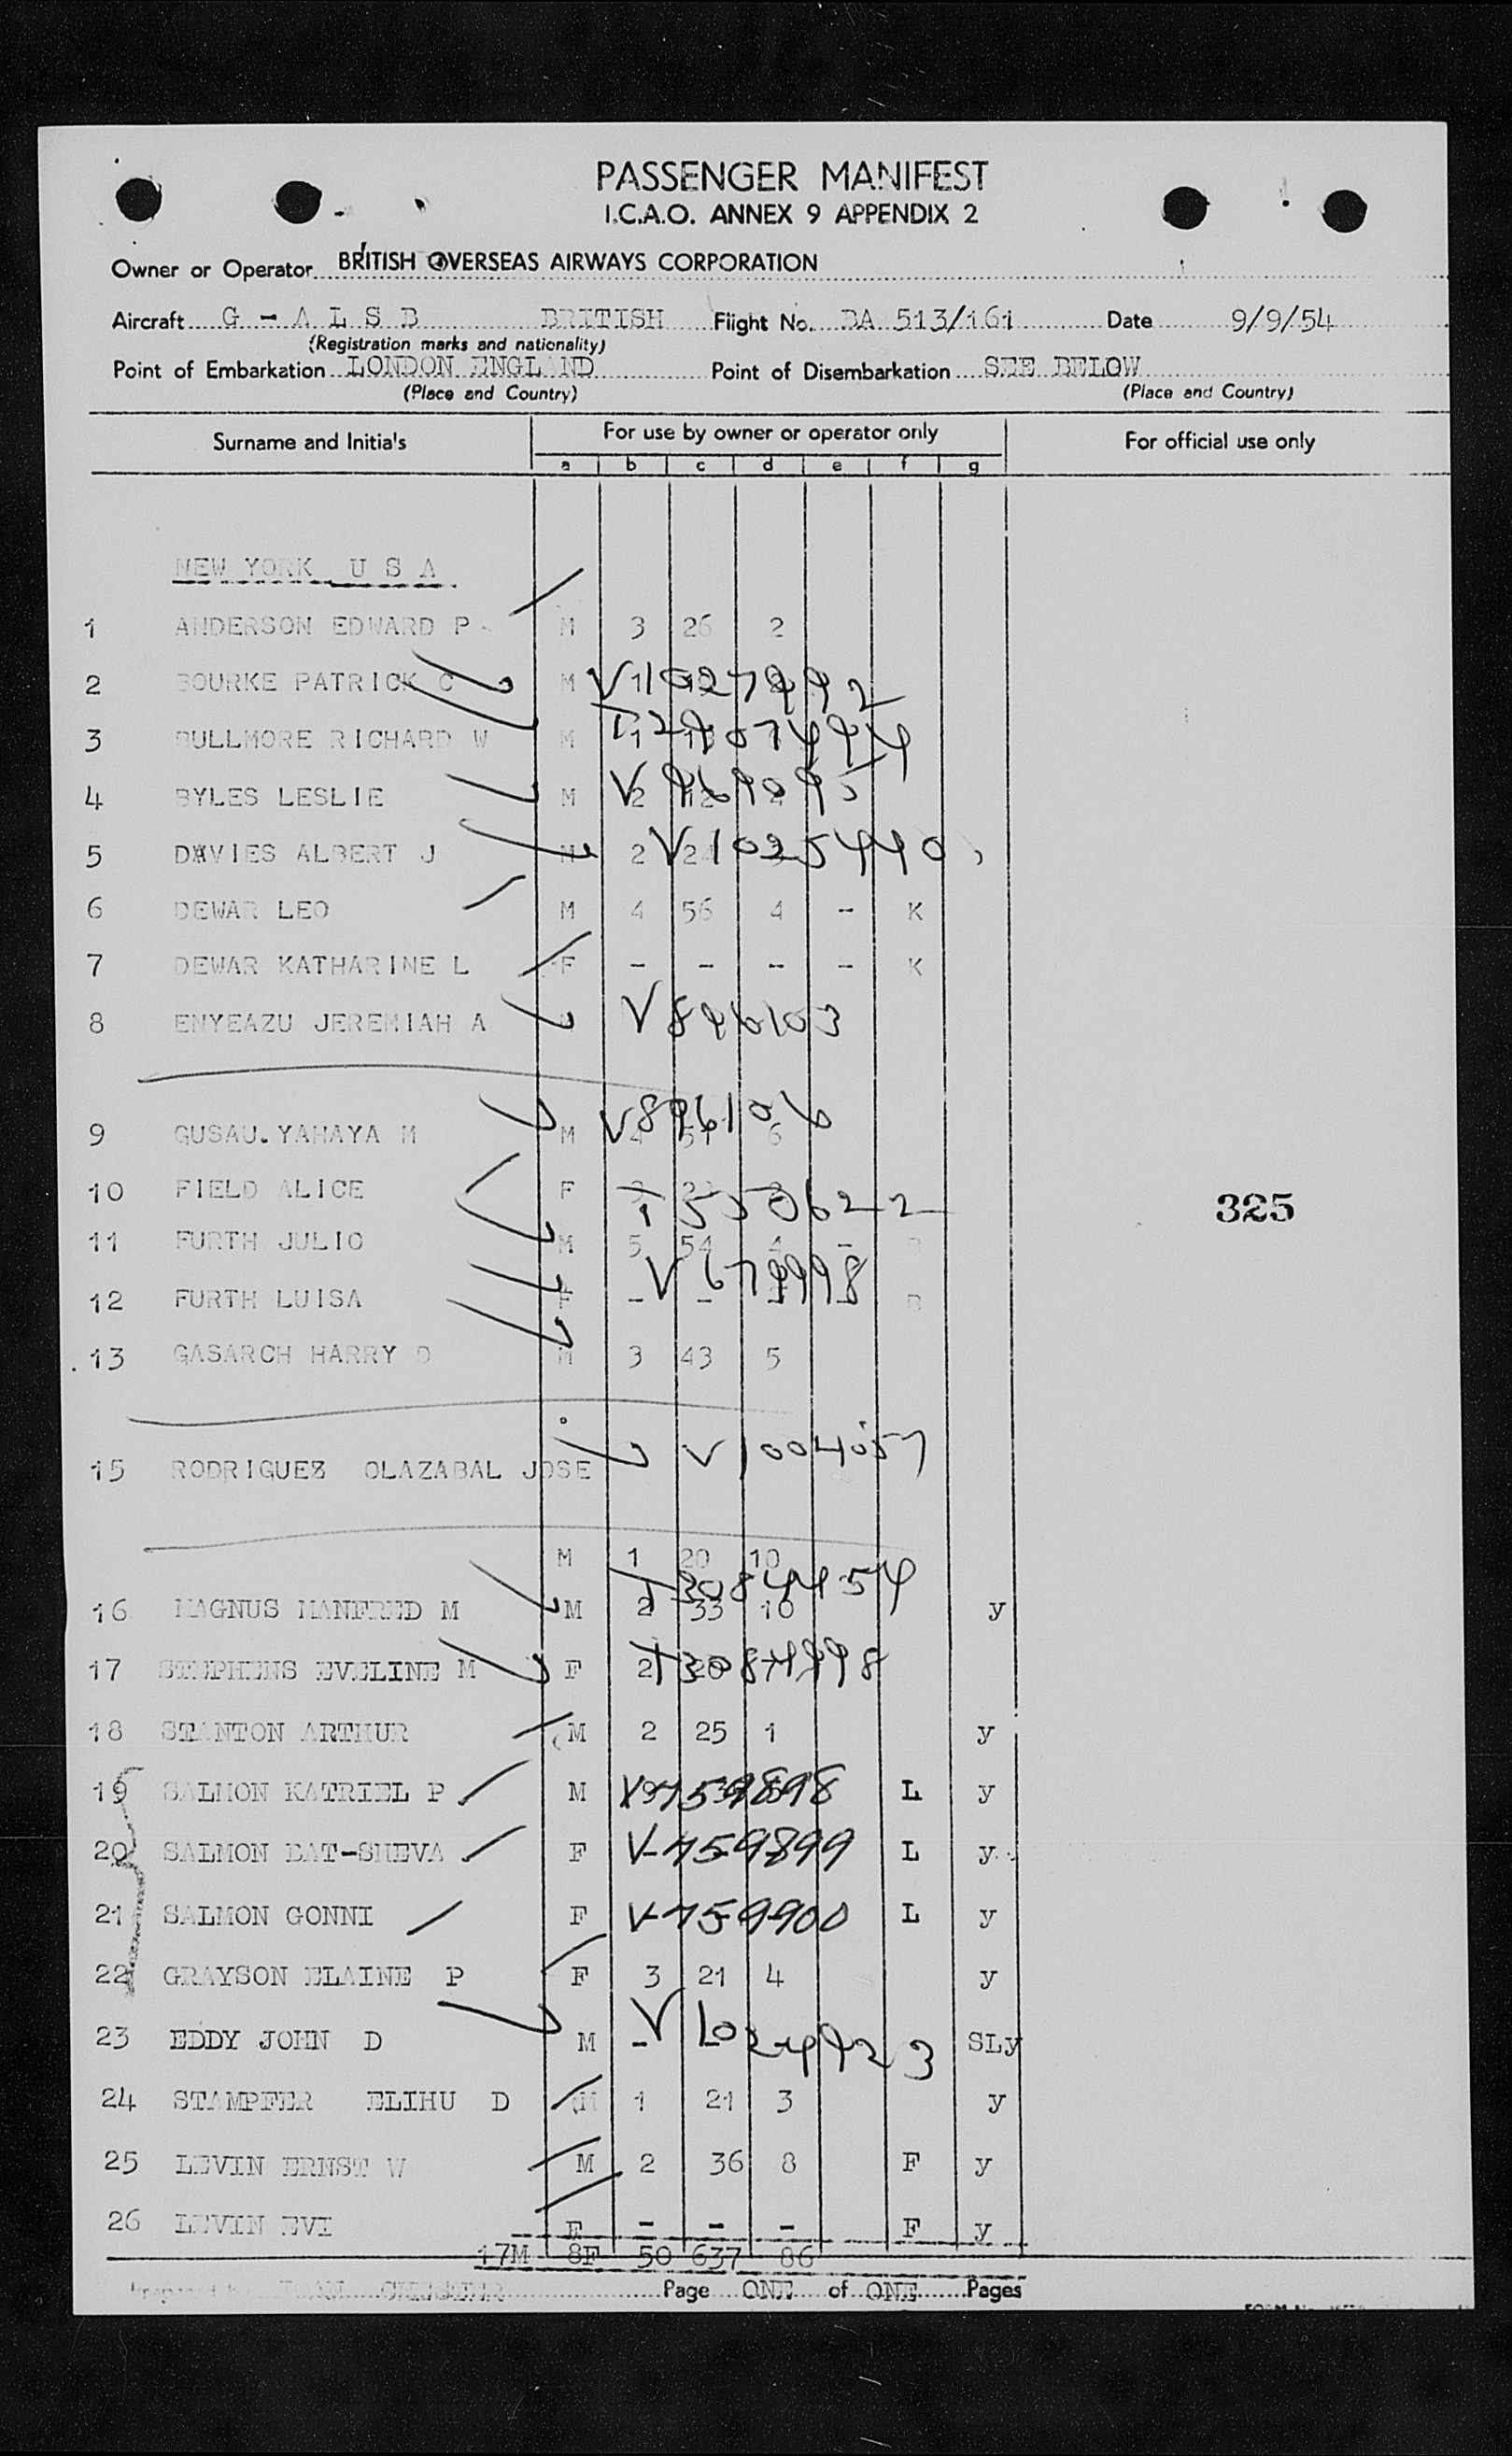 PASSENGER MANIFEST
I.C.A.O. ANNEX 9 APPENDIX 2
Owner or Operator BRITISH OVERSEAS AIRWAYS CORPORATION
Aircraft G - A L S B BRITISH Flight No. BA 513/161 Date 9/9/54
(Registration marks and nationality)
Point of Embarkation LONDON ENGLAND Point of Disembarkation SEE BELOW
(Place and Country) (Place and Country)
Surname and Initia's For use by owner or operator only For official use only
a b c d e f g
NEW YORK U S A
1 ANDERSON EDWARD P M 3 26 2
2 BOURKE PATRICK C M V10279992
3 BULLMORE RICHARD W M
4 BYLES LESLIE M 2
5 DAVIES ALBERT J M 2 24 V10254440
6 DEWAR LEO M 4 56 4 - K
7 DEWAR KATHARINE L F - - - - K
8 ENYEAZU JEREMIAH A V896103
9 GUSAU.YAHAYA M M 4 51 6 V896106
10 FIELD ALICE F T550622
11 FURTH JULIO M 5 54 4 -
12 FURTH LUISA F - - - - V679998
.13 GASARCH HARRY D M 3 43 5
15 RODRIGUEZ OLAZABAL JOSE V1004057
M 1 20 10
16 MAGNUS MANFRED M M 2 33 10 T3084454 y
17 STEPHENS EVELINE M F 2 T30874998
18 STANTON ARTHUR M 2 25 1 y
19 SALMON KATRIEL P M V759898 L y
20 SALMON BAT-SHEVA F V-759899 L y
21 SALMON GONNI F V-759900 L y
22 GRAYSON ELAINE P F 3 21 4 y
23 EDDY JOHN D M - V1024923 SLy
24 STAMPFER ELIHU D M 1 21 3 y
25 LEVIN ERNST W M 2 36 8 F y
26 LEVIN EVI F - - - F y
17M 8F 50 637 86
325
Page ONE of ONE Pages